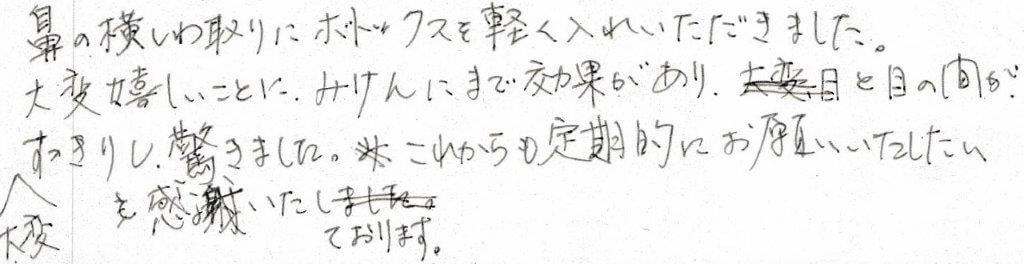 鼻の横しわ取りにボトックスを軽く入れいただきました。
大変嬉しいことに、みけんにまで効果があり、大変目と目の間が
すっきりし、驚きました。これからも定期的にお願いいたしたい
を感謝いたしました。
大変
ております。